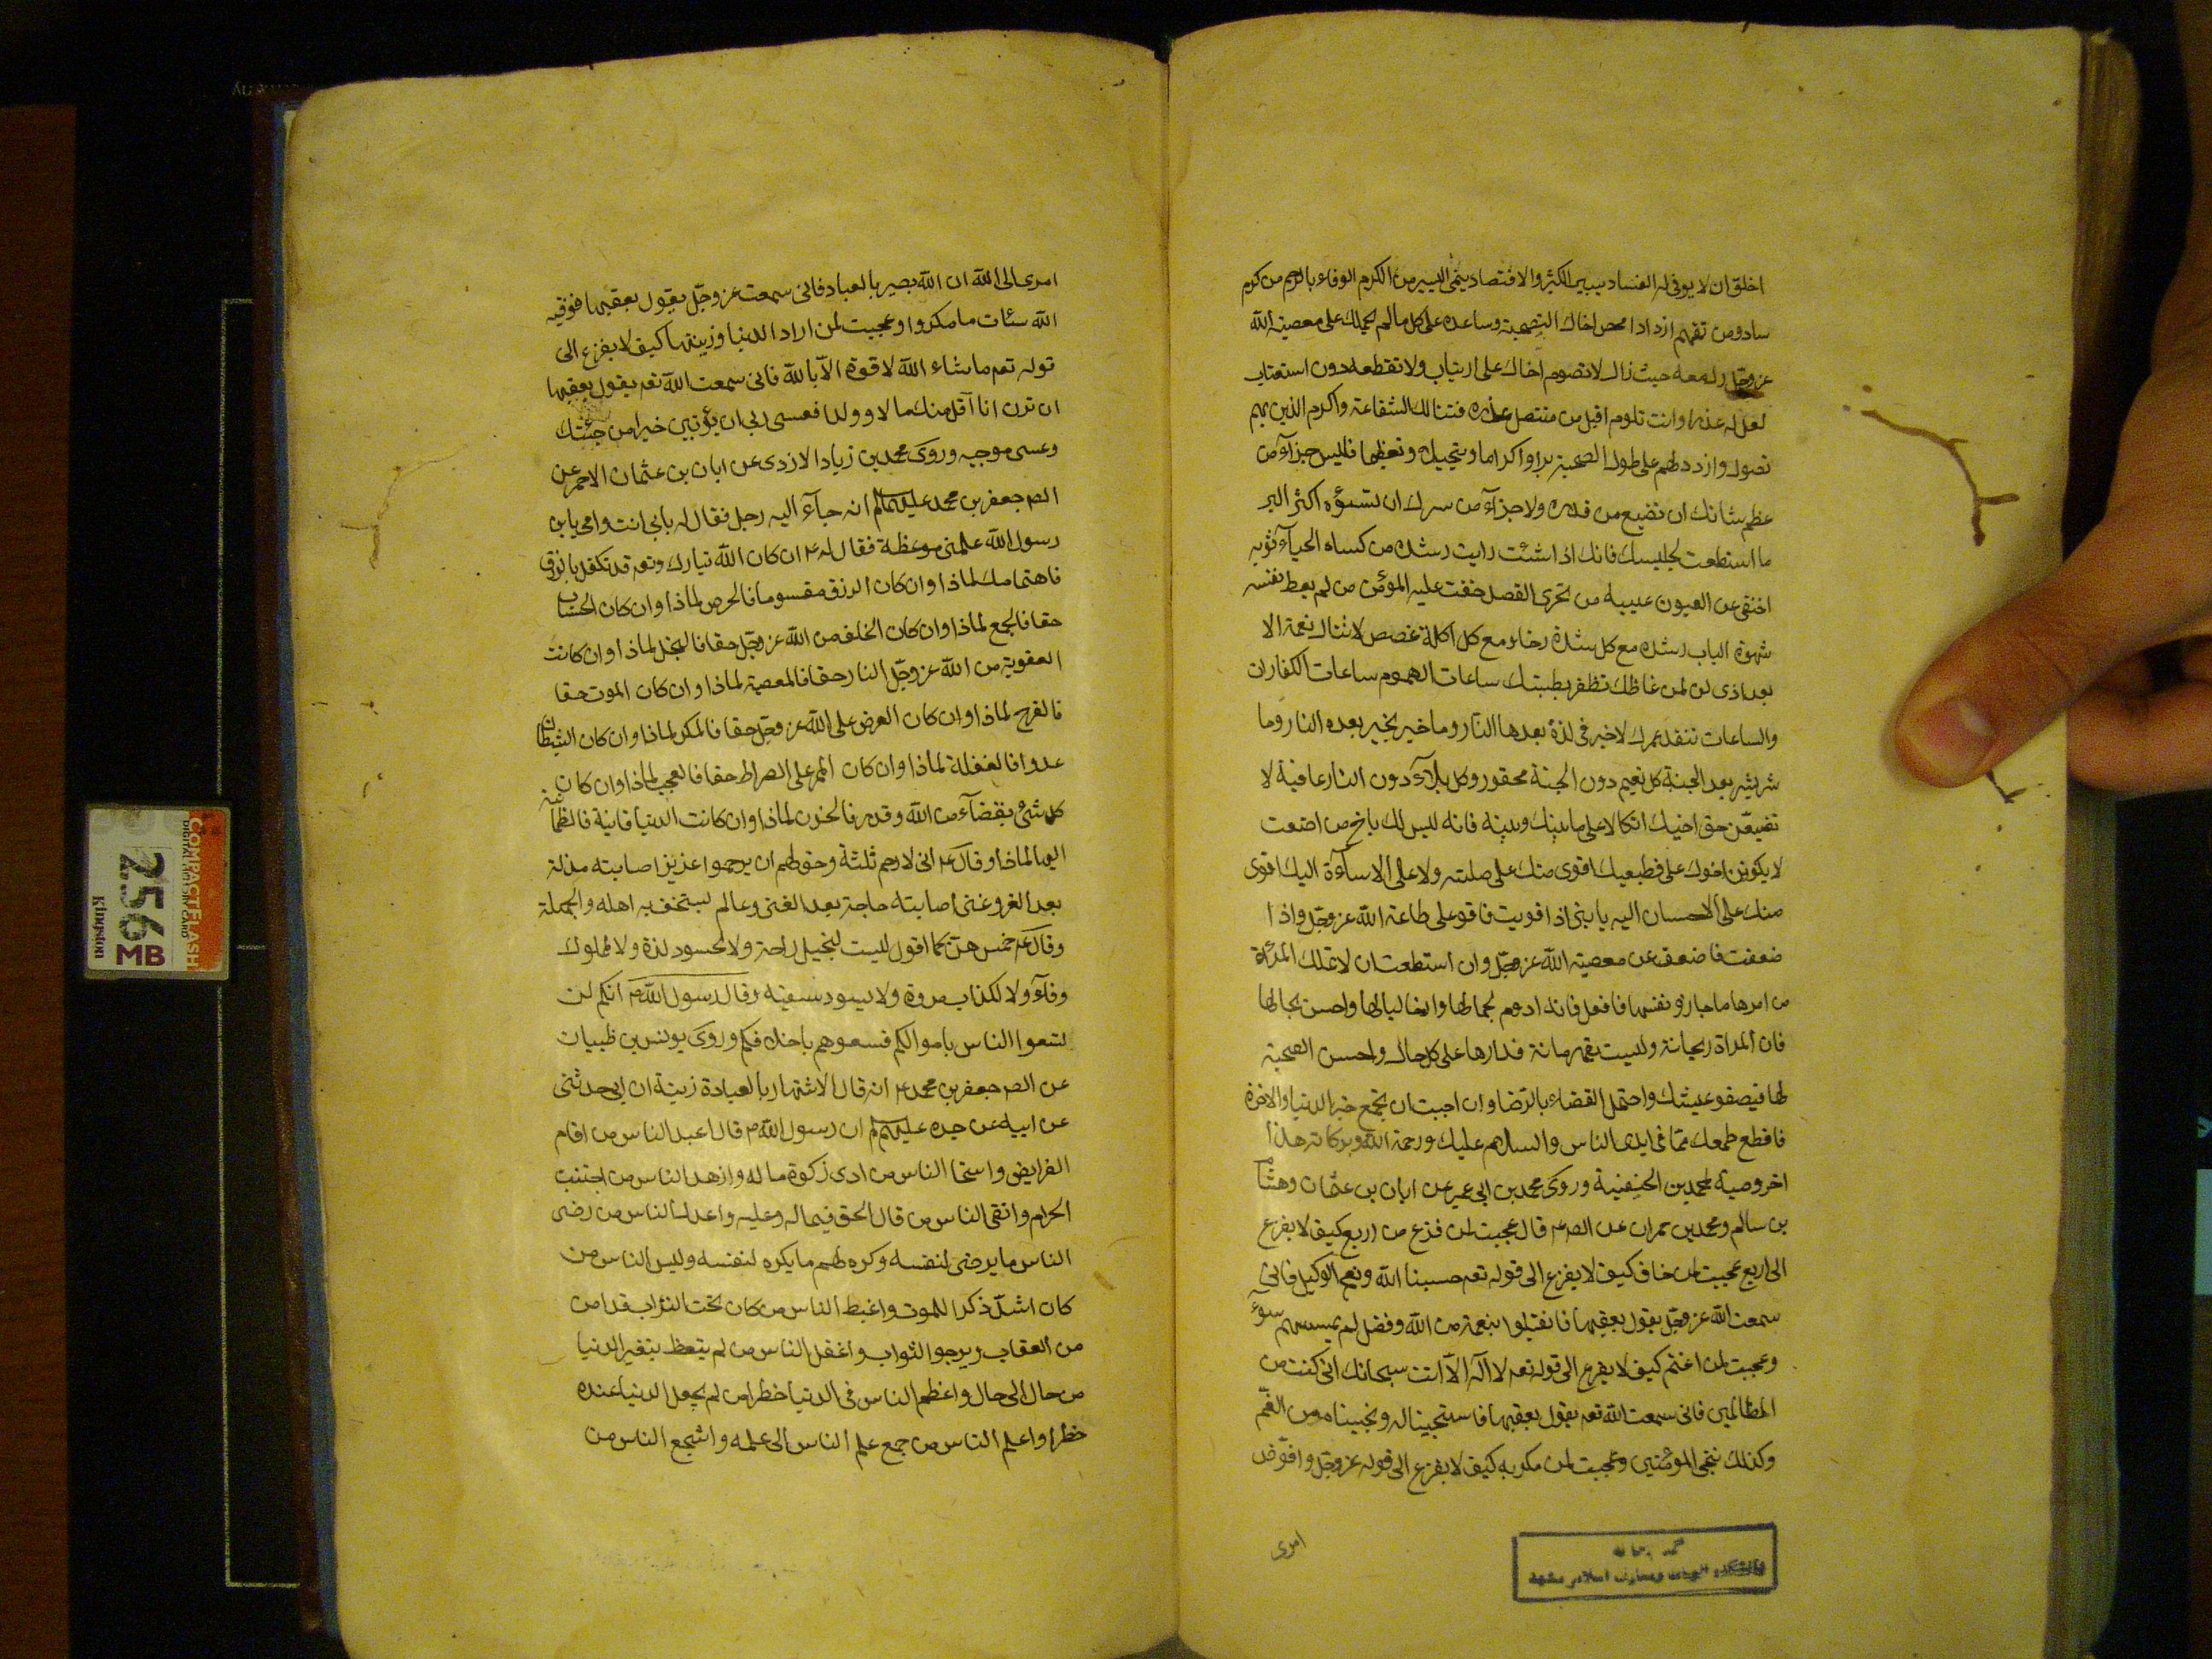 اخلق ان لا يوفى له الفساد يبير الكثير والاقتصاد ينمى اليسير من الكرم الوفاء بالذمم من كرم
ساد ومن تفهم ازداد امحض اخاك النصيحة وساعده على كل ما لم يحملك على معصية الله
عز وجل زل معه حيث زال لا تصرم اخاك على ارتياب ولا تقطعه دون استعتاب
لعل له عذرا وانت تلوم اقبل من متنصل عذره فتنالك الشفاعة واكرم الذين بهم
تصول وازدد لهم على طول الصحبة برا واكراما وتبجيلا وتعظيما فليس جزاء من
عظم شانك ان تضع من قدره ولا جزاء من سرك ان تسوءه اكثر البر
ما استطعت لجليسك فانك اذا شئت رايت رشده من كساه الحياء ثوبه
اختفى عن العيون عيبه من تحرى القصد خفت عليه المؤن من لم يعط نفسه
شهوة اصاب رشده مع كل شدة رخاء ومع كل اكلة غصص لا تنال نعمة الا
بعد اذى لن لمن غاظك تظفر بطلبتك ساعات الهموم ساعات الكفارات
والساعات تنفد عمرك لا خير فى لذة بعدها النار وما خير بخير بعده النار وما
شر بشر بعد الجنة كل نعيم دون الجنة محقور وكل بلاء دون النار عافية لا
تضيعن حق اخيك اتكالا على ما بينك وبينه فانه ليس لك باخ من اضعت
لا يكونن اخوك على قطيعتك اقوى منك على صلته ولا على الاساءة اليك اقوى
منك على الاحسان اليه يا بنى اذا قويت فاقو على طاعة الله عز وجل واذا
ضعفت فاضعف عن معصية الله عز وجل وان استطعت ان لا تملك المرأة
من امرها ما جاوز نفسها فافعل فانه ادوم لجمالها وارخا لبالها واحسن لحالها
فان المراة ريحانة وليست بقهرمانة فدارها على كل حال واحسن الصحبة
لها فيصفو عيشك واحتمل القضاء بالرضا وان احببت ان تجمع خير الدنيا والاخرة
فاقطع طمعك مما فى ايدى الناس والسلام عليك ورحمة الله وبركاته هذا
اخر وصية لمحمد بن الحنفية وروى محمد بن ابى عمير عن ابان بن عثمان وهشام
بن سالم ومحمد بن حمران عن الصم قال عجبت لمن فزع من اربع كيف لا يفزع
الى اربع عجبت لمن خاف كيف لا يفزع الى قوله تعم حسبنا الله ونعم الوكيل فانى
سمعت الله عز وجل يقول بعقبها فانقلبوا بنعمة من الله وفضل لم يمسسهم سوء
وعجبت لمن اغتم كيف لا يفزع الى قوله تعم لا اله الا انت سبحانك انى كنت من
الظالمين فانى سمعت الله تعم يقول بعقبها فاستجبنا له ونجيناه من الغم
وكذلك ننجى المؤمنين وعجبت لمن مكر به كيف لا يفزع الى قوله عز وجل وافوض
امرى
امرى الى الله ان الله بصير بالعباد فانى سمعت عز وجل يقول بعقبها فوقيه
الله سيئات ما مكروا وعجبت لمن اراد الدنيا وزينتها كيف لا يفزع الى
قوله تعم ما شاء الله لا قوة الا بالله فانى سمعت الله تعم يقول بعقبها
ان ترن انا اقل منك مالا وولدا فعسى ربى ان يؤتين خيرا من جنتك
وعسى موجبه وروى محمد بن زياد الازدى عن ابان بن عثمان الاحمر عن
الصم جعفر بن محمد عليهما لم انه جاء اليه رجل فقال له بابى انت وامى يا بن
رسول الله علمنى موعظة فقال له ع ان كان الله تبارك وتعم قد تكفل بالرزق
فاهتمامك لماذا وان كان الرزق مقسوما فالحرص لماذا وان كان الحساب
حقا فالجمع لماذا وان كان الخلف من الله عز وجل حقا فالبخل لماذا وان كانت
العقوبة من الله عز وجل النار حقا فالمعصية لماذا وان كان الموت حقا
فالفرح لماذا وان كان العرض على الله عز وجل حقا فالمكر لماذا وان كان الشيطان
عدوا فالغفلة لماذا وان كان الممر على الصراط حقا فالعجب لماذا وان كان
كل شئ بقضاء من الله وقدر فالحزن لماذا وان كانت الدنيا فانية فالطمانينة
اليها لماذا وقال ع انى لارحم ثلثة وحق لهم ان يرحموا عزيز اصابته مذلة
بعد العز وغنى اصابته حاجة بعد الغنى وعالم يستخف به اهله والجهلة
وقال ع خمس هن كما اقول ليست لبخيل راحة ولا لحسود لذة ولا لملوك
وفاء ولا لكذاب مروة ولا يسود سفيه وقال رسول الله ص انكم لن
تسعوا الناس باموالكم فسعوهم باخلاقكم وروى يونس بن ظبيان
عن الصم جعفر بن محمد ع انه قال الاشتهار بالعبادة ريبة ان ابى حدثنى
عن ابيه عن جده عليهم لم ان رسول الله ص قال اعبد الناس من اقام
الفرايض واسخا الناس من ادى زكوة ماله وازهد الناس من اجتنب
الحرام واتقى الناس من قال الحق فيما له وعليه واعدل الناس من رضى
الناس ما يرضى لنفسه وكره لهم ما يكره لنفسه وليس الناس من
كان اشد ذكرا للموت واغبط الناس من كان تحت التراب قد امن
من العقاب ويرجوا الثواب واغفل الناس من لم يتعظ بتغير الدنيا
من حال الى حال واعظم الناس فى الدنيا خطرا من لم يجعل الدنيا عنده
خطرا واعلم الناس من جمع علم الناس الى علمه واشجع الناس من
COMPACTFLASH
256
MB
Kingston